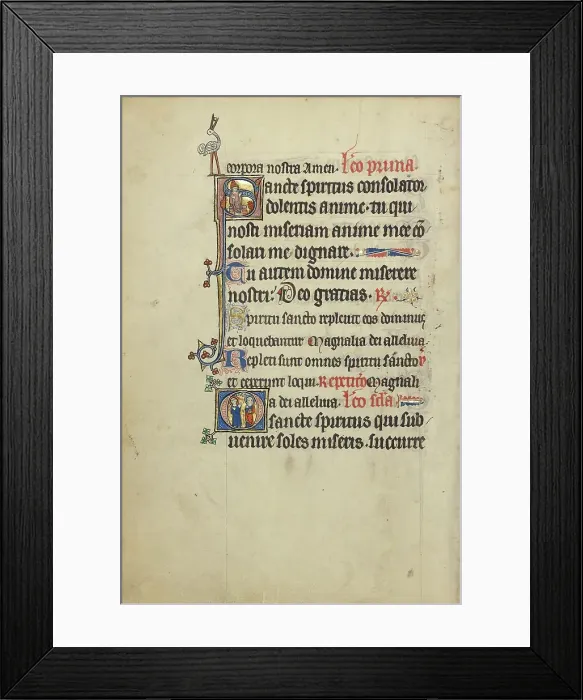 corpora nostra Amen. lco prima.
Sancte spiritus consolator
dolentis anime. tu qui
nosti miseriam anime mee co
solari me dignare.
Tu autem domine miserere
nostri. Deo gratias. R
Spiritu sancto repleuit eos dominus
et loquebantur Magnalia dei alleluia
Repleti sunt omnes spiritu sancto V
et ceperunt loqui. Repetitio Magnali
a dei alleluia. lco scda
O sancte spiritus qui sub
uenire soles miseris. succurre